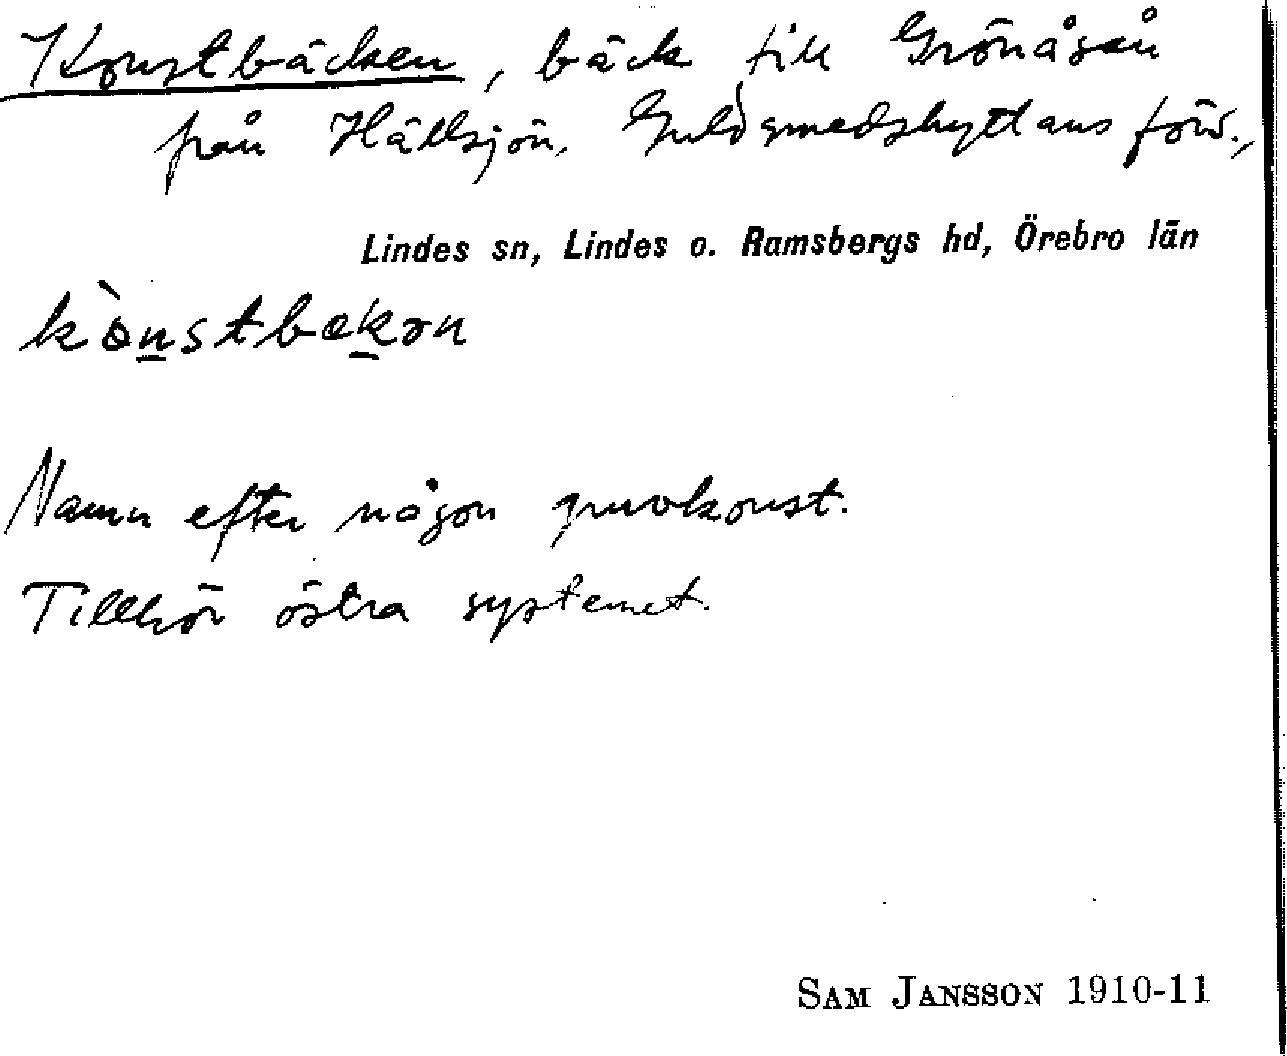 Konstbäcken, bäck till Grönåsån
från Hällsjön, Guldsmedshyttans förs.,
Lindes sn, Lindes o. Ramsbergs hd, Örebro län
kònstbekən
Namn efter någon gruvkonst.
Tillhör östra systemet.
SAM JANSSON 1910-11